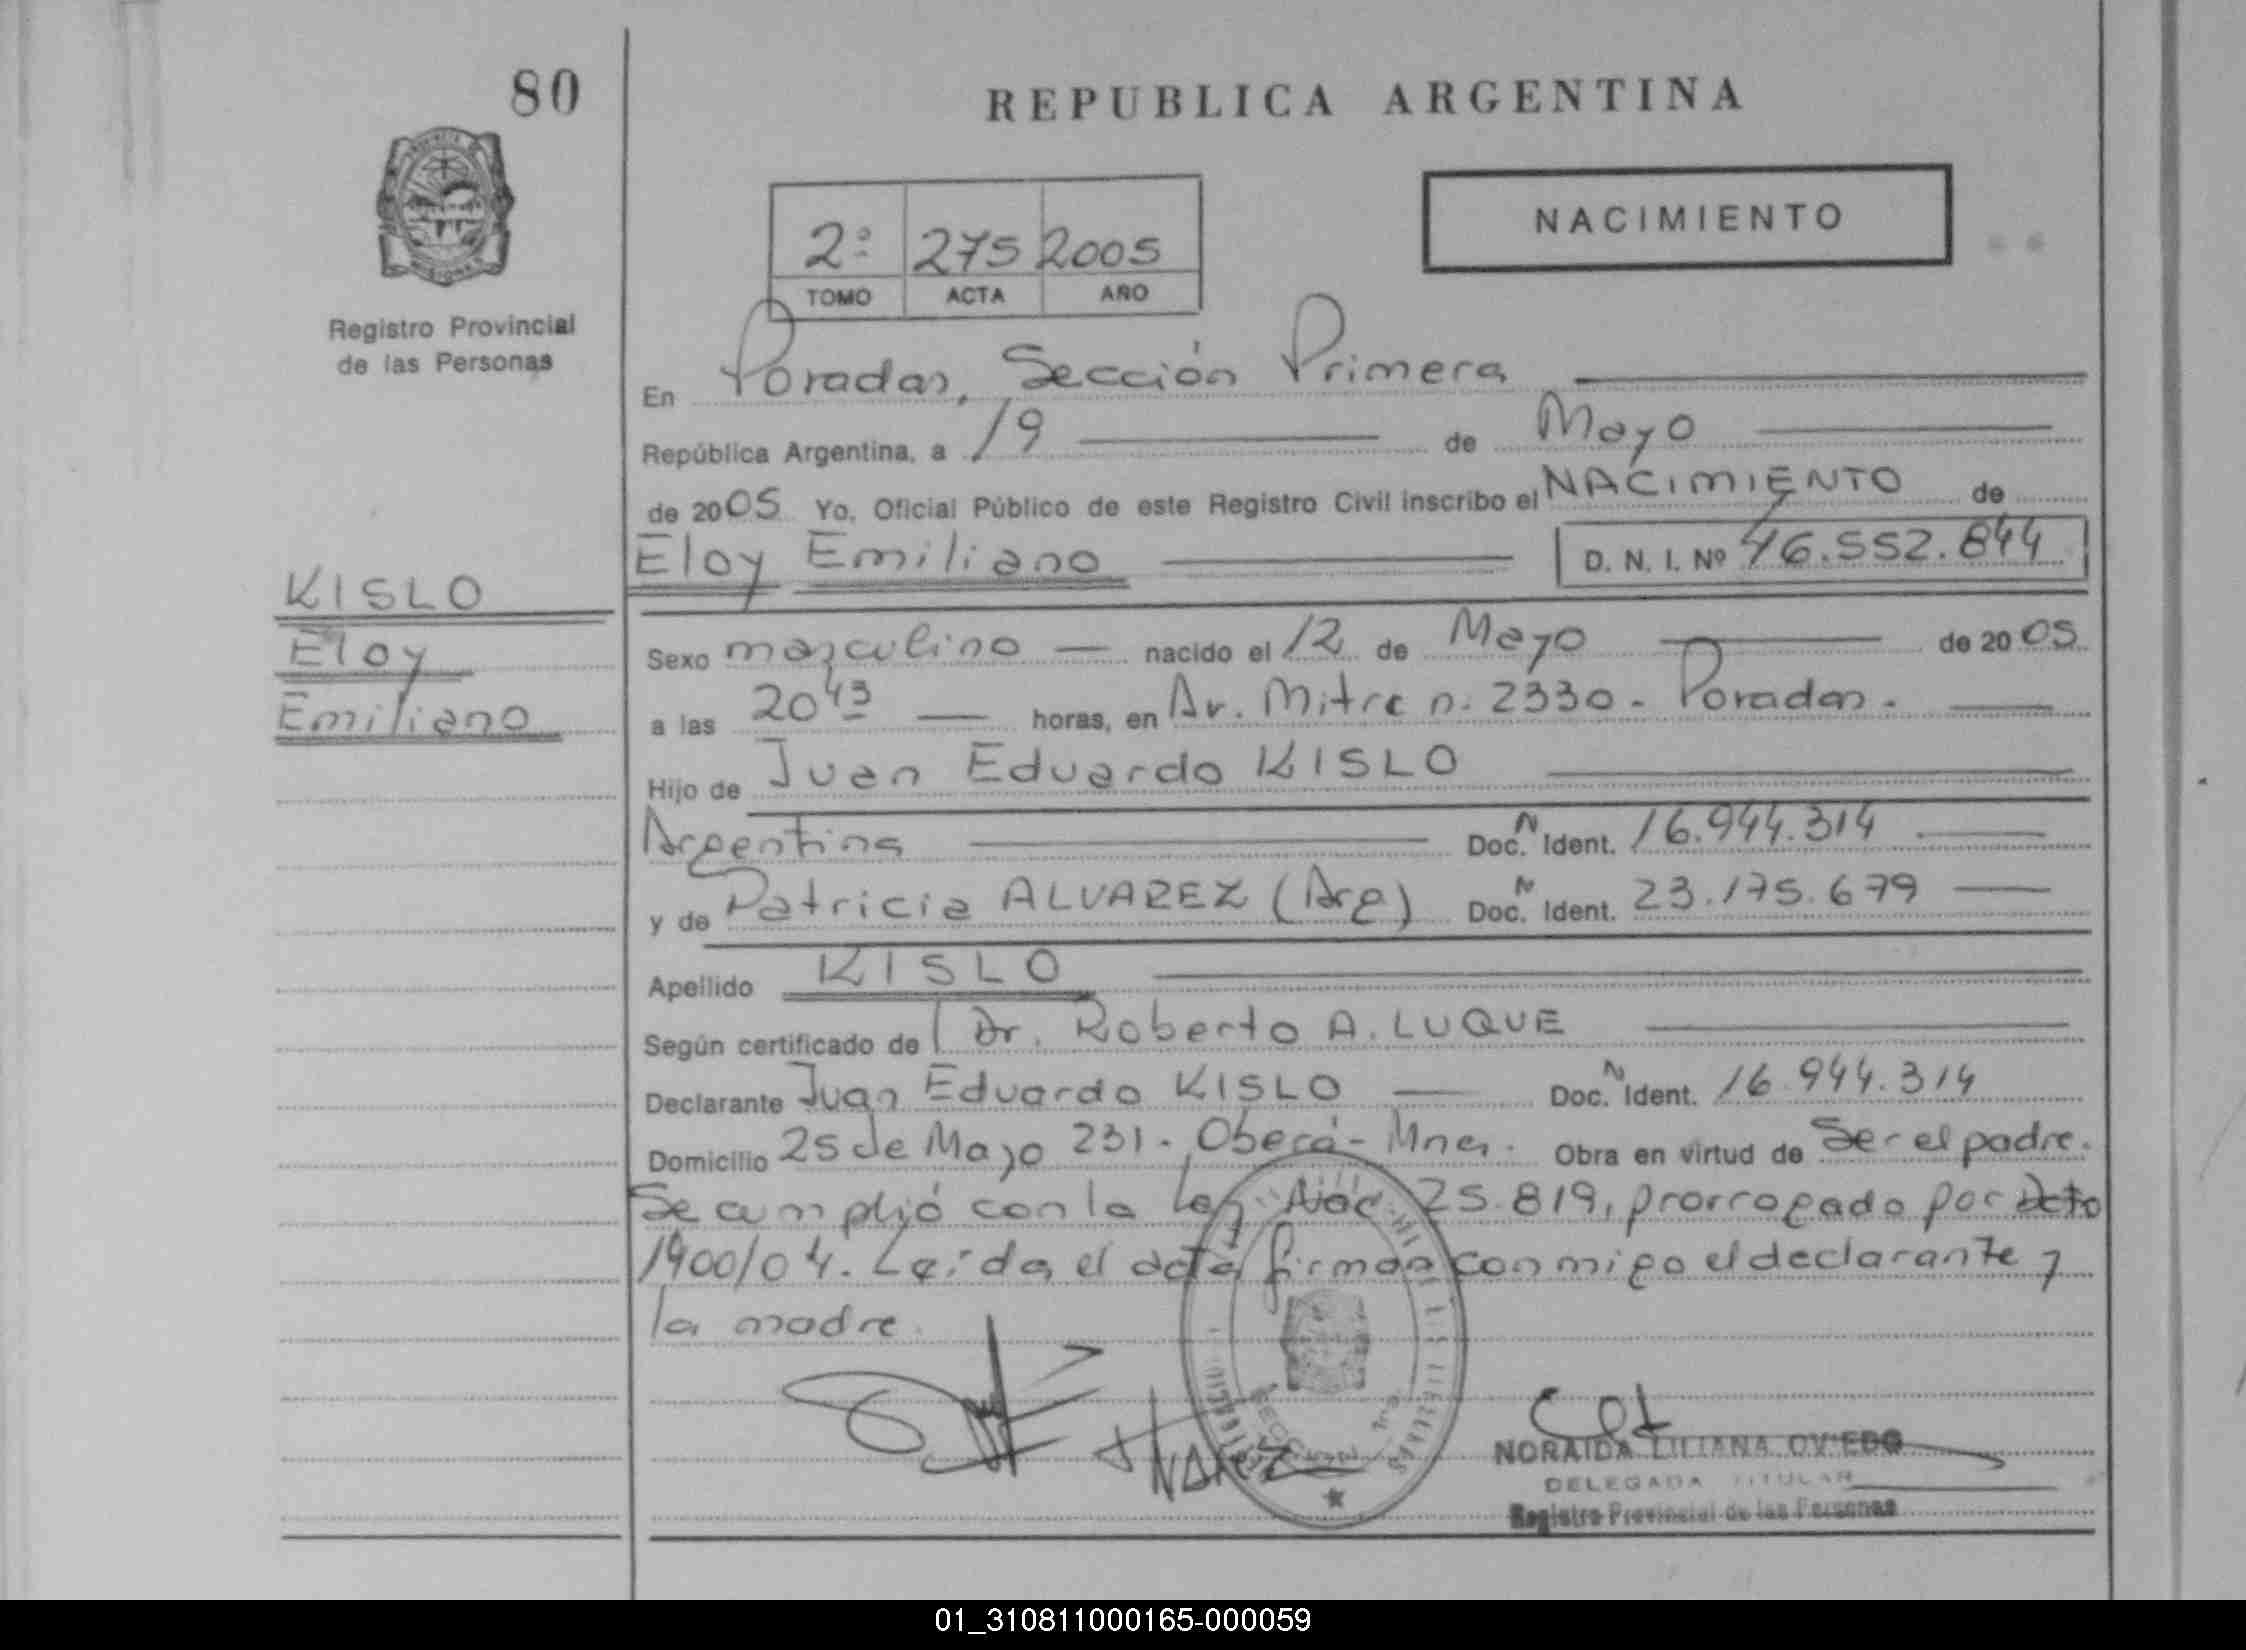 80
REPUBLICA ARGENTINA
NACIMIENTO
2º 275 2005
TOMO ACTA AÑO
Registro Provincial
de las Personas
En Posadas, Sección Primera
República Argentina, a 19 de Mayo
de 2005 Yo, Oficial Público de este Registro Civil inscribo el NACIMIENTO de
Eloy Emiliano D. N. I. Nº 46.552.844
KISLO
Eloy
Emiliano
Sexo masculino nacido el 12 de Mayo de 2005
a las 20 43 horas, en Av. Mitre n. 2330 - Posadas.
Hijo de Juan Eduardo KISLO
Argentina Doc. N Ident. 16.944.314
y de Patricia ALVAREZ (Arg) Doc. N Ident. 23.175.679
Apellido KISLO
Según certificado de Dr. Roberto A. LUQUE
Declarante Juan Eduardo KISLO Doc. N Ident. 16.944.314
Domicilio 25 de Mayo 231 - Oberá - Mnes. Obra en virtud de Ser el padre.
Se cumplió con la Ley Nac 25.819, prorrogado por Dcto
1400/04. Leída el acta firman conmigo el declarante y
la madre.
Alvarez
NORAIDA LILIANA OVIEDO
DELEGADA TITULAR
Registro Provincial de las Personas
01_310811000165-000059